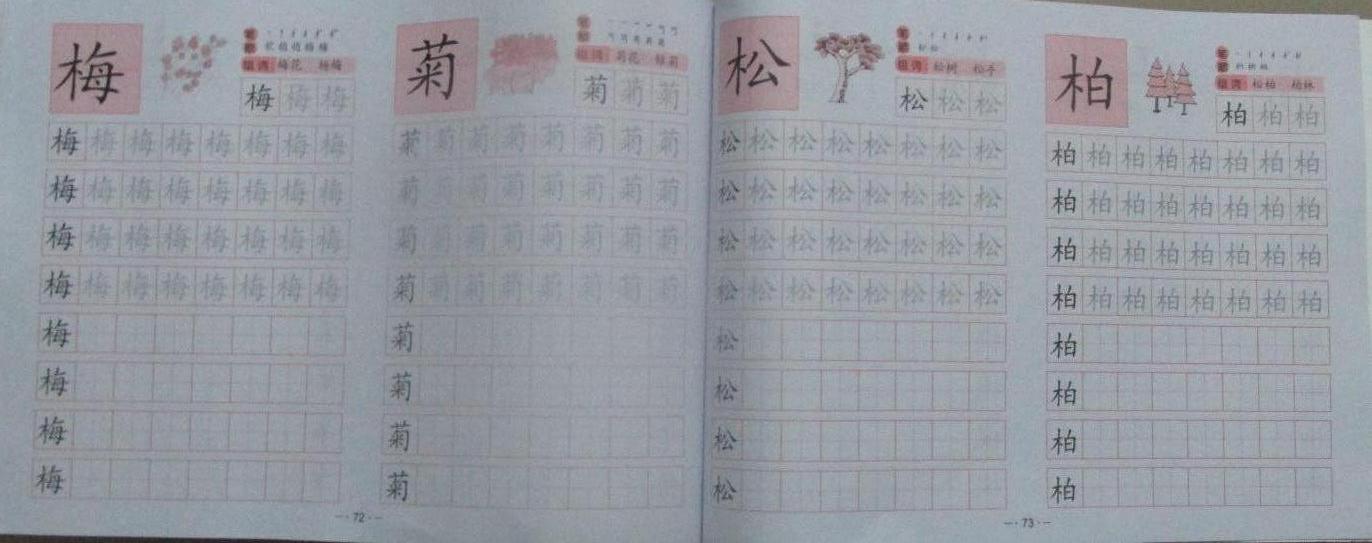 梅
笔顺
组词 梅花 杨梅
梅 梅 梅
梅 梅 梅 梅 梅 梅 梅 梅
梅 梅 梅 梅 梅 梅 梅 梅
梅 梅 梅 梅 梅 梅 梅 梅
梅 梅 梅 梅 梅 梅 梅 梅
梅
梅
梅
梅
菊
笔顺
组词 菊花
菊 菊 菊
菊 菊 菊 菊 菊 菊 菊 菊
菊 菊 菊 菊 菊 菊 菊 菊
菊 菊 菊 菊 菊 菊 菊 菊
菊 菊 菊 菊 菊 菊 菊 菊
菊
菊
菊
菊
— · 72 · —
松
笔顺
组词 松树 松手
松 松 松
松 松 松 松 松 松 松 松
松 松 松 松 松 松 松 松
松 松 松 松 松 松 松 松
松 松 松 松 松 松 松 松
松
松
松
松
柏
笔顺
组词 松柏 柏林
柏 柏 柏
柏 柏 柏 柏 柏 柏 柏 柏
柏 柏 柏 柏 柏 柏 柏 柏
柏 柏 柏 柏 柏 柏 柏 柏
柏 柏 柏 柏 柏 柏 柏 柏
柏
柏
柏
柏
— · 73 · —